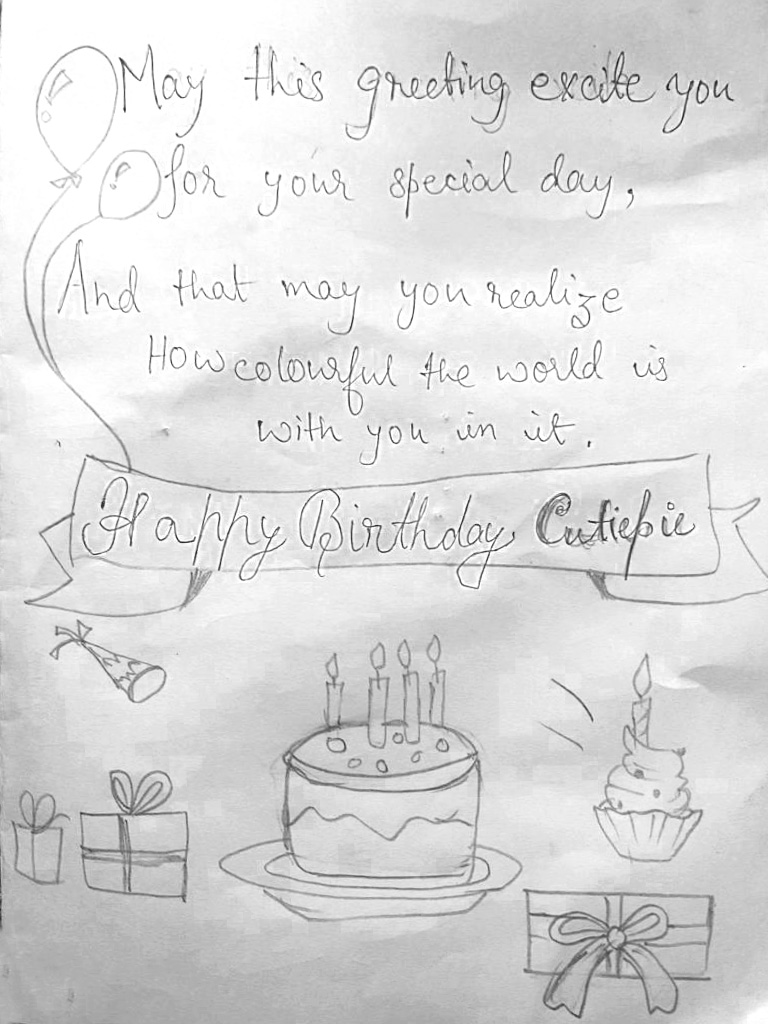 May this greeting excite you
for your special day,
And that may you realize
How colourful the world is
with you in it.
Happy Birthday Cutiepie